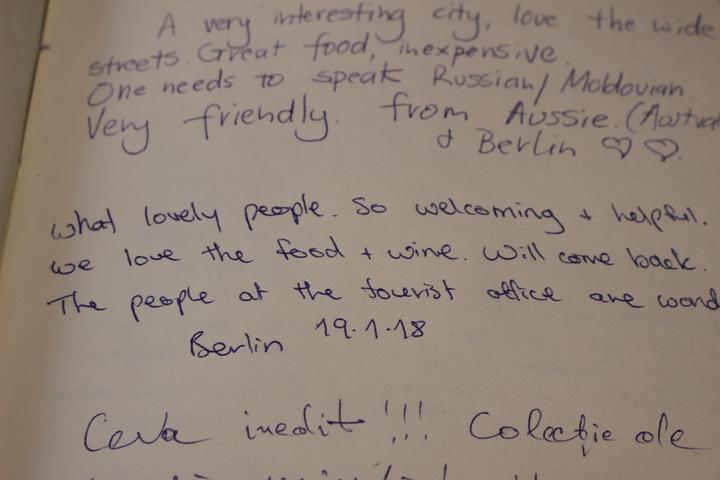 A very interesting city, love the wide
streets. Great food, inexpensive.
One needs to speak Russian/Moldovian
Very friendly. from Aussie. (Austral
& Berlin ♡♡.
what lovely people. So welcoming + helpful.
we love the food + wine. Will come back.
The people at the tourist office are wond
Berlin 19.1.18
Ceva inedit!!! Colecție de